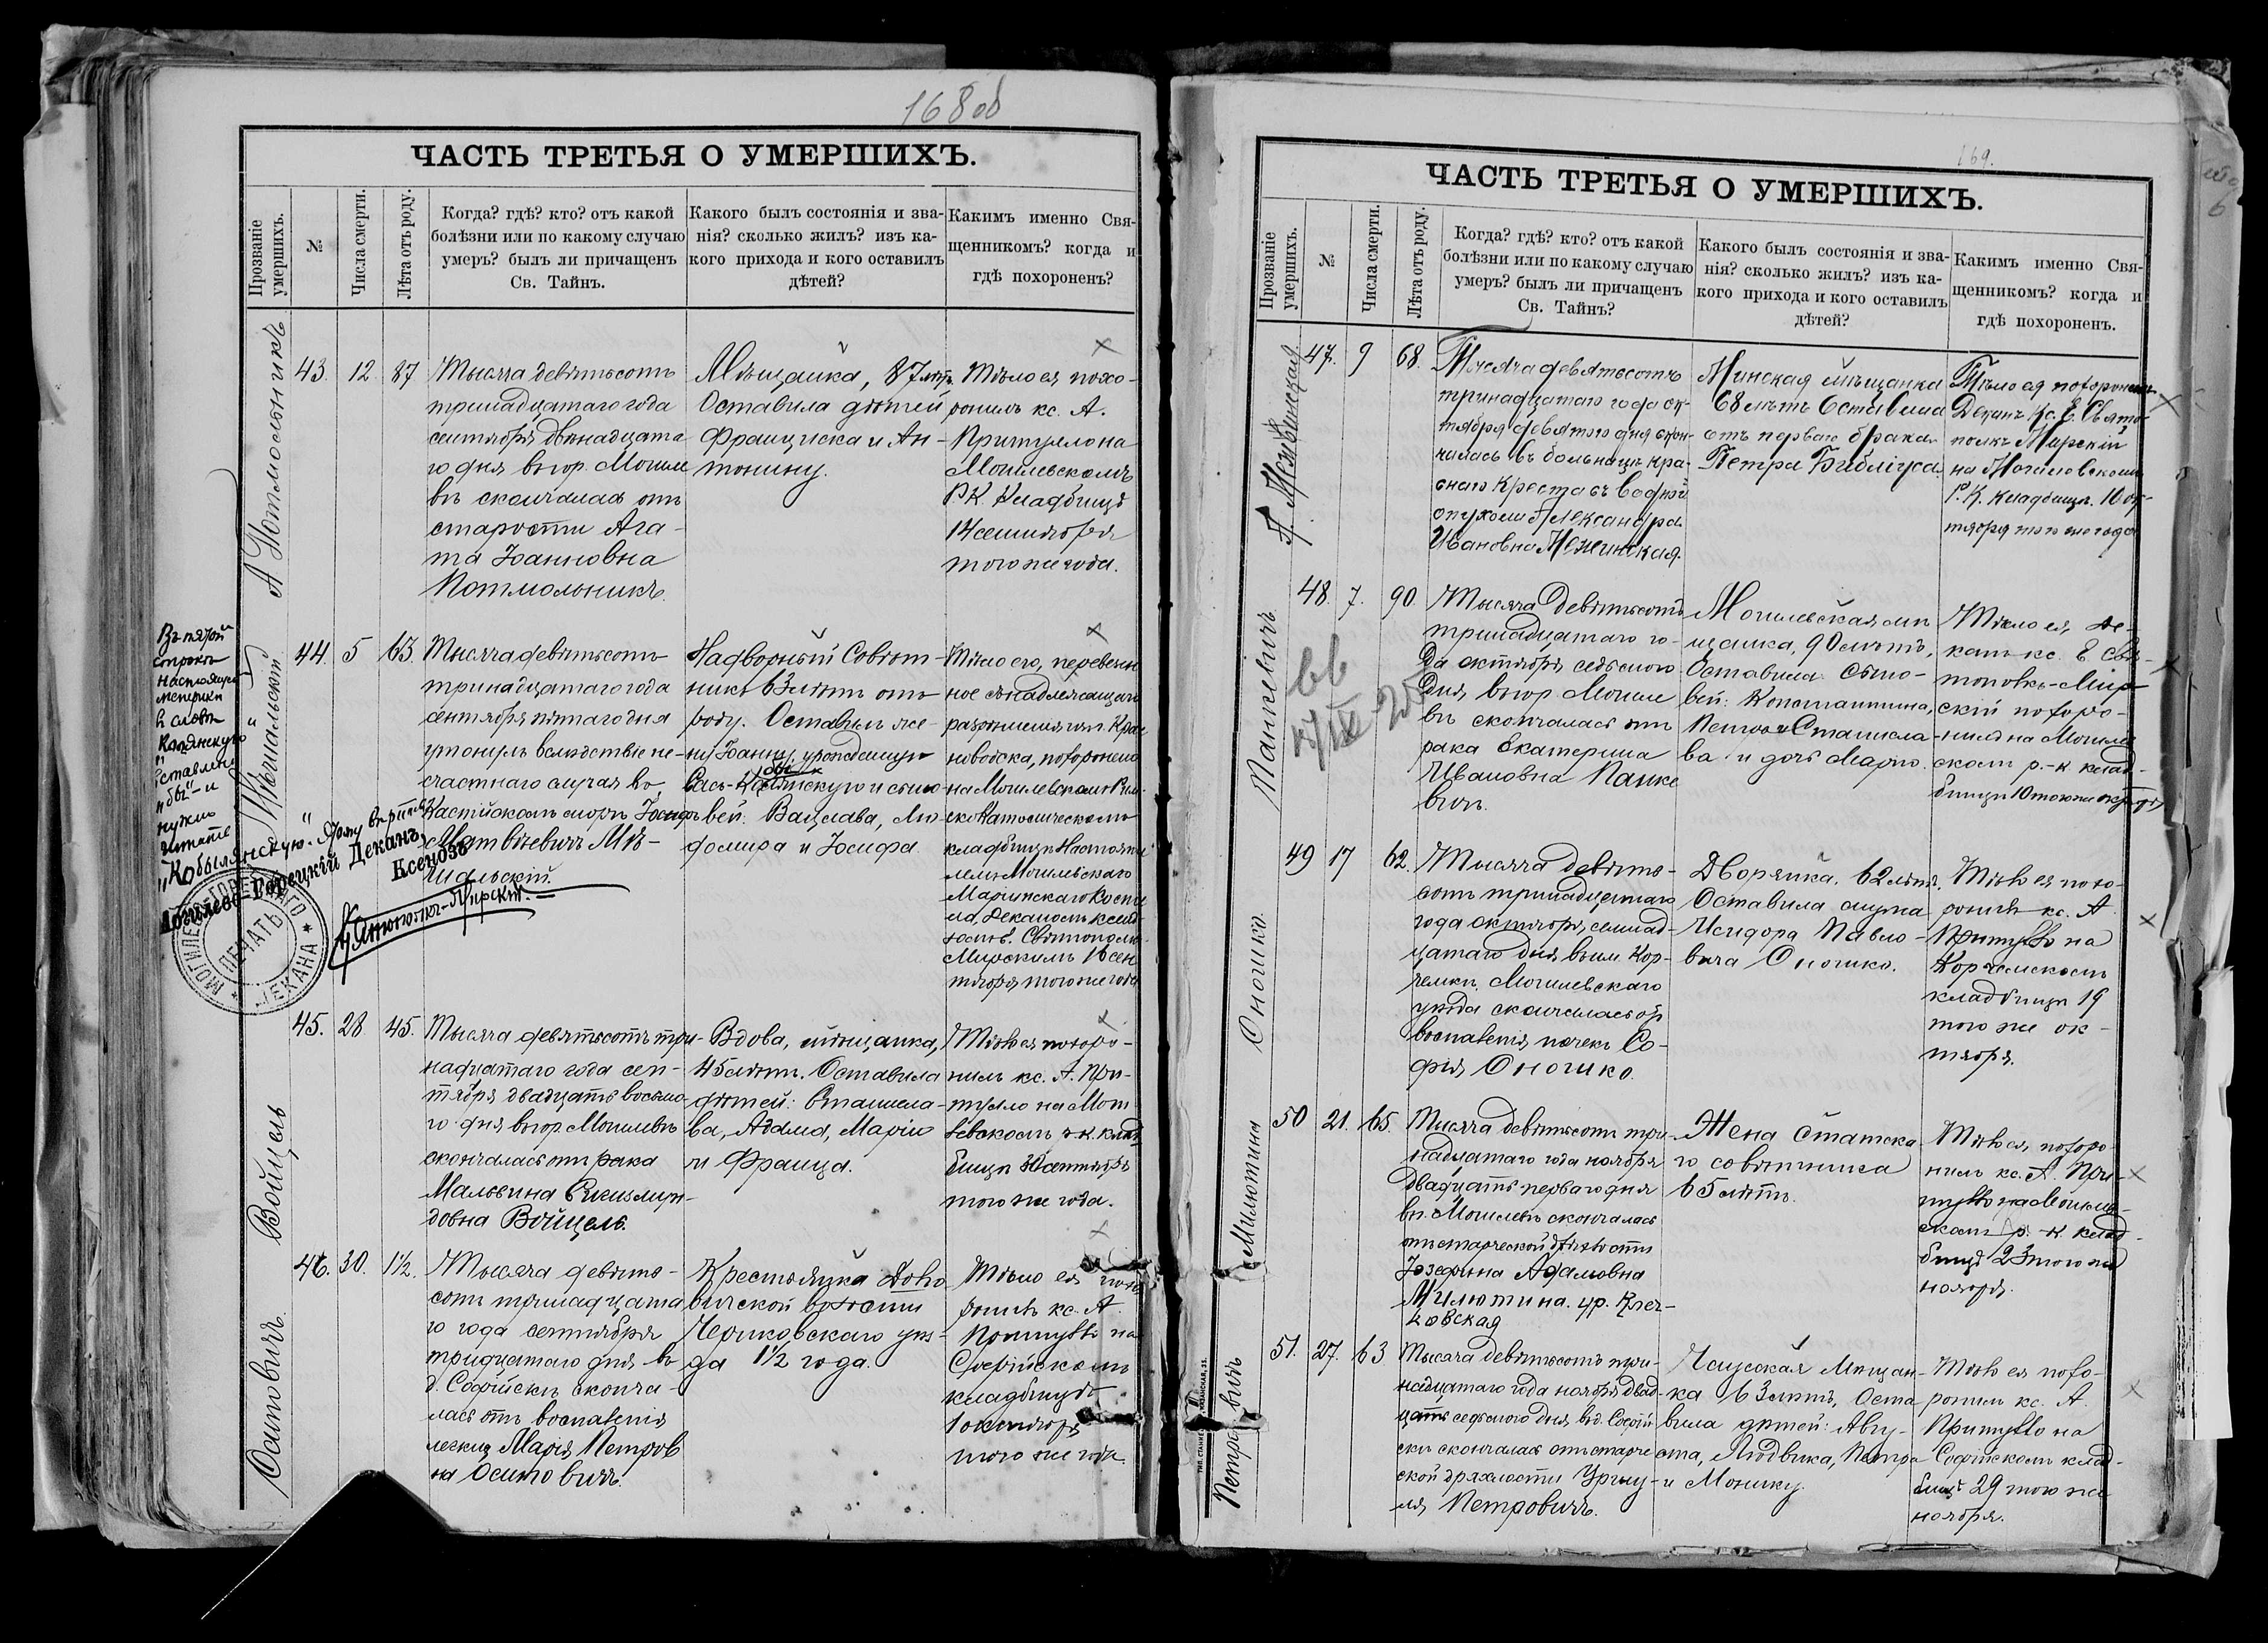 168 об
ЧАСТЬ ТРЕТЬЯ О УМЕРШИХЪ.
Прозваніе умершихъ.
№
Числа смерти.
Лѣта отъ роду.
Когда? гдѣ? кто? отъ какой
болѣзни или по какому случаю
умеръ? былъ ли причащенъ
Св. Тайнъ.
Какого былъ состоянія и зва-
нія? сколько жилъ? изъ ка-
кого прихода и кого оставилъ
дѣтей?
Какимъ именно Свя-
щенникомъ? когда и
гдѣ похороненъ?
А Потмольникъ
43. 12 87
Тысяча девятьсотъ
тринадцатаго года
сентября двѣнадцата
го дня вгор. Могиле
вѣ скончалась отъ
старости Ага-
та Іоанновна
Потмольникъ.
Мѣщанка, 87 лѣтъ.
Оставила дѣтей
Франциска и Ан-
тонину.
Тѣло ея похо-
ронилъ кс. А.
Примуялло на
Могилевскомъ
Р К Кладбищѣ
14 сентября
того же года.
Въ пятой
строкѣ
настоящей
метрики
въ словѣ
вставлено
"бы" и
нужно
читать
"Кобылянскую".
Могилево-Горецкій Деканъ,
Ксендзъ
МОГИЛЕВО-ГОРЕЦКАГО ДЕКАНА
ПЕЧАТЬ
44. 5 63.
Тысяча девятьсотъ
тринадцатаго года
сентября пятаго дня
утонулъ вслѣдствіе не-
счастнаго случая въ
Каспійскомъ морѣ Іосифъ
Матвѣевичъ Мѣ-
шальскій.
Надворный Совѣт-
никъ 63 лѣтъ отъ
роду. Оставилъ же-
ну Іоанну, урожденную
и сыно-
вей: Вацлава, Лю-
домира и Іосифа
Тѣло его, перевезен-
ное съ надлежащаго
разрѣшенія изъ Крас-
новодска, похоронено
на Могилевскомъ Рим-
ско Католическомъ
кладбищѣ Настояте-
лемъ Могилевскаго
Маріинскаго Косте-
ла, Деканомъ ксенд-
зомъ Е. Святополкъ-
Мирскимъ 16 сен-
тября того же года
Войцель
45. 28. 45.
Тысяча девятьсотъ три-
надцатаго года сен-
тября двадцать восьма-
го дня вгор. Могилевѣ
скончалась отъ рака
Мальвина Сигизмун-
довна Войцель.
Вдова, мѣщанка,
45 лѣтъ. Оставила
дѣтей: Станисла-
ва, Адама, Марію
и Франца.
Тѣло ея похоро-
нилъ кс. А. При-
муялло на Моги
левскомъ р. к. клад-
бищѣ 30 сентября
того же года.
Осиповичъ.
46. 30. 1½.
Тысяча девять-
сотъ тринадцата
го года сентября
тридцатаго дня въ
д. Софійскъ сконча-
лась отъ воспаленія
легкихъ Марія Петров
на Осиповичъ.
Крестьянка
волости
Чериковскаго уѣз-
да 1½ года.
Тѣло ея похо-
ронилъ кс. А.
Примуялло на
Софійскомъ
кладбищѣ
1 октября
того же года.
169.
ЧАСТЬ ТРЕТЬЯ О УМЕРШИХЪ.
Прозваніе умершихъ.
№
Числа смерти.
Лѣта отъ роду.
Когда? гдѣ? кто? отъ какой
болѣзни или по какому случаю
умеръ? былъ ли причащенъ
Св. Тайнъ?
Какого былъ состоянія и зва-
нія? сколько жилъ? изъ ка-
кого прихода и кого оставилъ
дѣтей?
Какимъ именно Свя-
щенникомъ? когда и
гдѣ похороненъ.
47. 9 68.
Тысяча девятьсотъ
тринадцатаго года ок-
тября девятаго дня скон-
чалась въ больницѣ кра-
снаго Креста отъ
опухоли Александра
Ивановна
Минская мѣщанка
68 лѣтъ Оставила
отъ перваго брака
Петра
Тѣло ея похоронилъ
Деканъ Кс. Е. Свято-
полкъ Мирскій
на Могилевскомъ
Р. К. кладбищѣ. 10 ок-
тября того же года
Панкевичъ
48. 7. 90.
Тысяча девятьсотъ
тринадцатаго го-
да октября седьмого
дня вгор. Могиле
вѣ скончалась отъ
рака Екатерина
Ивановна Панке
вичъ.
Могилевская мѣ
щанка, 90 лѣтъ.
Оставила сыно-
вей: Константина,
Петра и Станисла-
ва и дочь Марію.
Тѣло ея, де-
канъ кс. Е. Свя-
тополкъ-Мир-
скій похоро-
нилъ на Могилев
скомъ р.-к клад-
бищѣ 10 того же октября
Оношко.
49 17 62.
Тысяча девять-
сотъ тринадцатаго
года октября, семнад-
цатаго дня вым. Кор-
чемки, Могилевскаго
уѣзда скончалась отъ
воспаленія почекъ Со-
фія Оношко.
Дворянка. 62 лѣтъ.
Оставила мужа
Исидора Павло-
вича Оношко.
Тѣло ея похо-
ронилъ кс. А
Примуялло на
Корчемскомъ
кладбищѣ 19
того же ок-
тября.
Милютина
50 21. 65.
Тысяча девятьсотъ три-
надцатаго года ноября
двадцать перваго дня
вг. Могилевѣ скончалась
отъ старческой дряхлости
Іозефина Адамовна
Милютина. ур. Клеч-
ковская
Жена статска-
го совѣтника
65 лѣтъ.
Тѣло ея, похоро-
нилъ кс. А. При-
муялло на Могилев-
скомъ р.-к клад-
бищѣ 23 того же
ноября.
Петровичъ
51. 27. 63
Тысяча девятьсотъ три-
надцатаго года ноября двад-
цать седьмого дня, вд. Софій-
скъ скончалась отъ старче
ской дряхлости Уршу-
ля Петровичъ.
Чаусская мѣщан-
ка 63 лѣтъ, Оста
вила дѣтей: Авгу-
ста, Людвика, Петра
и Монику.
Тѣло ея похо-
ронилъ кс. А.
Примуялло на
Софійскомъ клад-
бищѣ 29 того же
ноября.